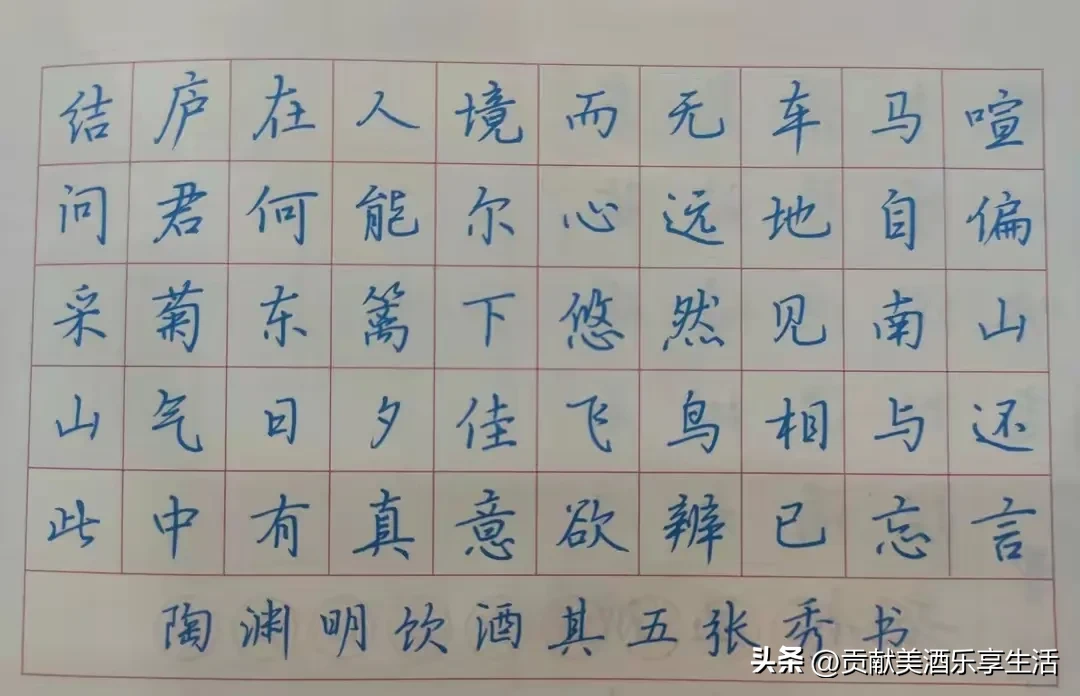 结庐在人境而无车马喧
问君何能尔心远地自偏
采菊东篱下悠然见南山
山气日夕佳飞鸟相与还
此中有真意欲辨已忘言
陶渊明饮酒其五张秀书
头条 @贡献美酒乐享生活